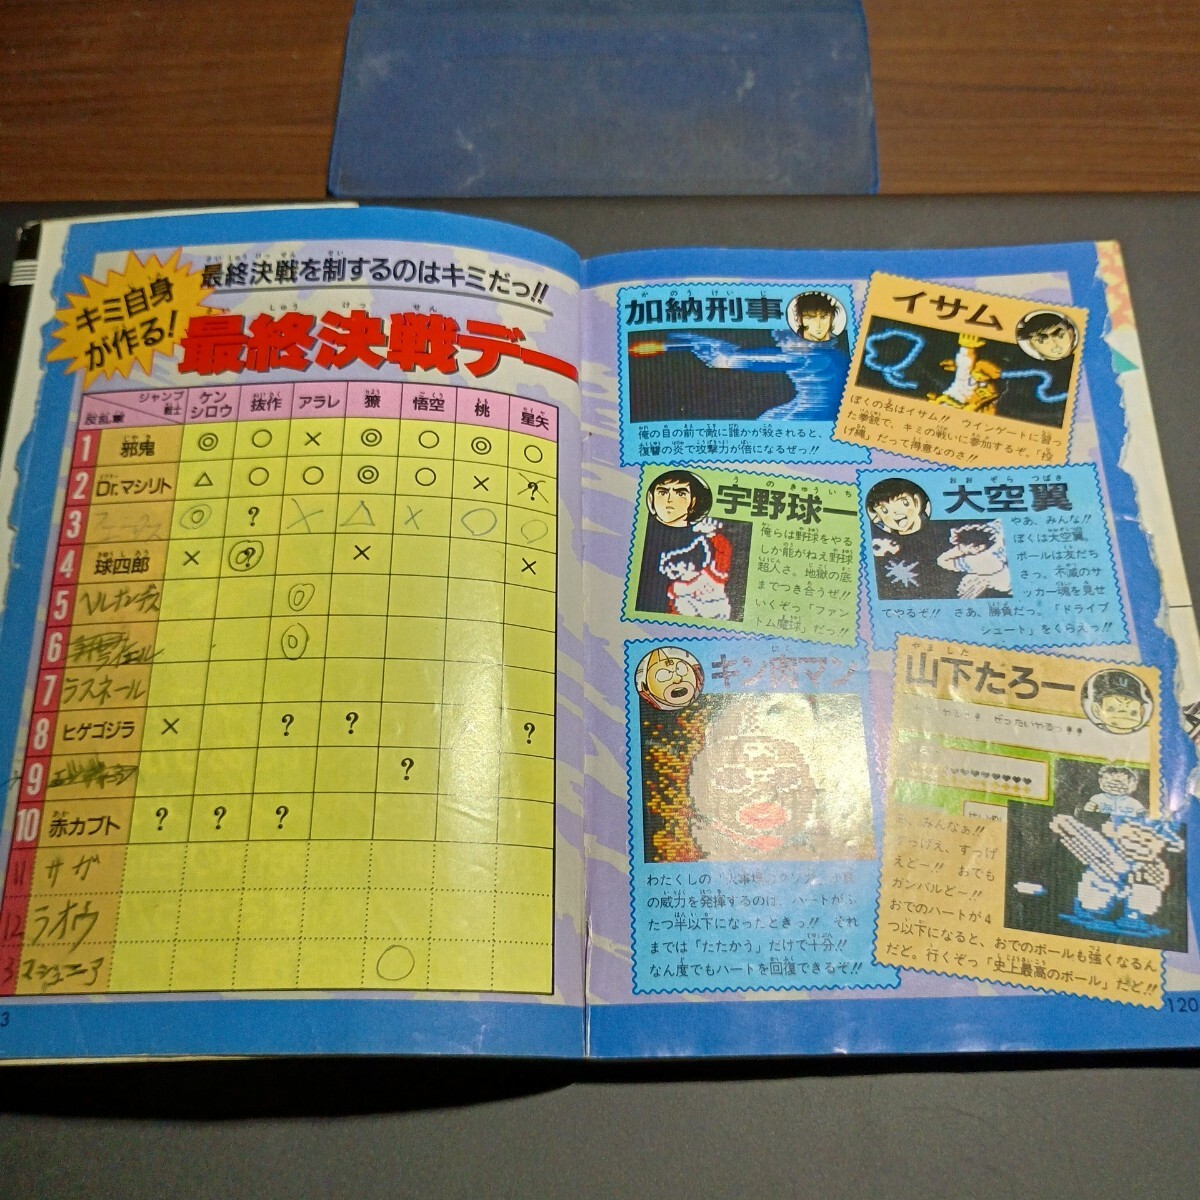 キミ自身
が作る!
最終決戦を制するのはキミだっ!!
最終決戦デー
ジャンプ戦士
反乱軍
ケンシロウ 抜作 アラレ 獠 悟空 桃 星矢
1 邪鬼 ◎ ○ × ◎ ○ ◎ ○
2 Dr.マシリト △ ○ ○ ◎ ○ × ?
3 ◎ ? × △ × ○ ○
4 球四郎 × ? × ×
5 ヘルナンデス ◎
6 ◎
7 ラスネール
8 ヒゲゴジラ × ? ? ?
9 ?
10 赤カブト ? ? ?
11 サガ
12 ラオウ
3 マジュニア ○
3
加納刑事
俺の目の前で敵に誰かが殺されると、
復讐の炎で攻撃力が倍になるぜっ!!
イサム
ぼくの名はイサム!! ウインゲートに習っ
た拳銃で、キミの戦いに参加するぞ。「投
げ縄」だって得意なのさ!!
宇野球一
俺らは野球をやる
しか能がねえ野球
超人さ。地獄の底
までつき合うぜ!!
いくぞっ「ファン
トム魔球」だっ!!
大空翼
やあ、みんな!!
ぼくは大空翼。
ボールは友だち
さっ。不滅のサ
ッカー魂を見せ
てやるぞ!! さあ、勝負だっ。「ドライブ
シュート」をくらえっ!!
キン肉マン
わたくしの
の威力を発揮するのは、ハートがふ
たつ半以下になったときっ!! それ
までは「たたかう」だけで十分!!
なん度でもハートを回復できるぞ!!
山下たろー
みんなぁ!!
っげえ、すっげ
えどー!! おでも
ガンバルどー!!
おでのハートが4
つ以下になると、おでのボールも強くなるん
だと。行くぞっ「史上最高のボール」だど!!
120